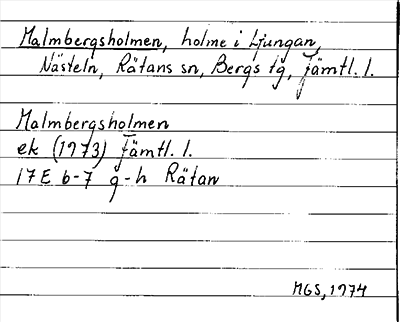 Malmbergsholmen, holme i Ljungan,
Nästeln, Rätans sn, Bergs tg, Jämtl. l.
Malmbergsholmen
ek (1973) Jämtl. l.
17E 6-7 g-h Rätan
MGS, 1974